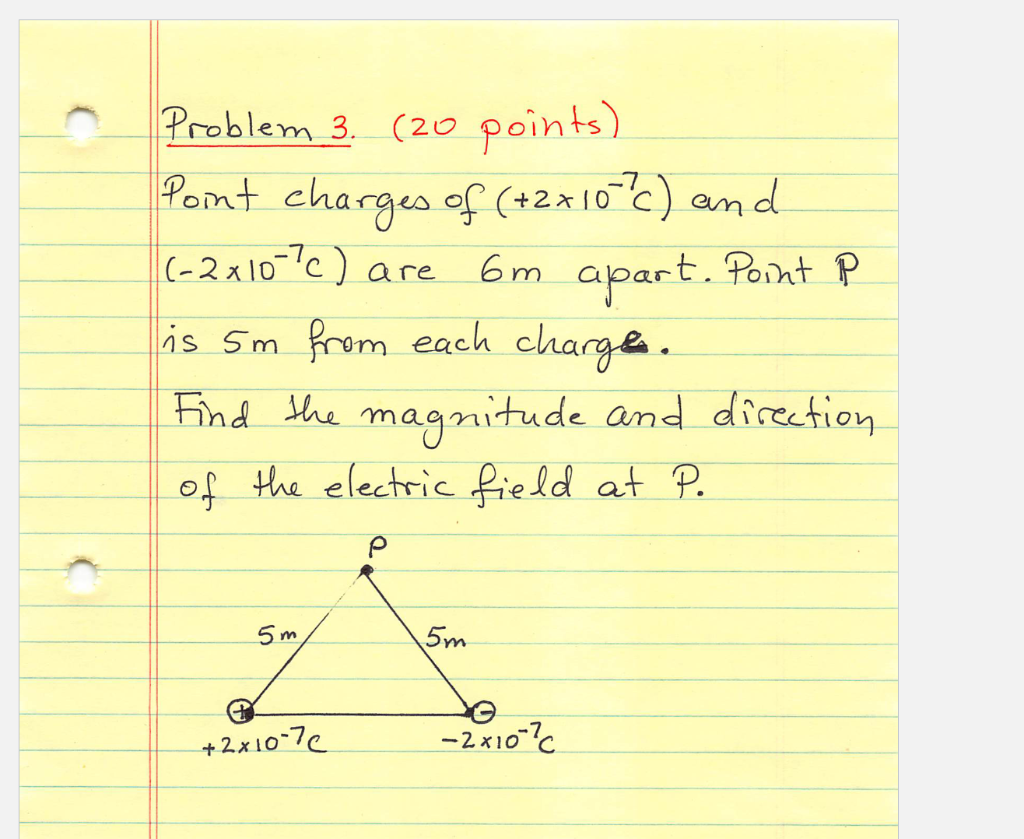 Problem 3. (20 points)
Point charges of (+2×10⁻⁷C) and
(-2×10⁻⁷C) are 6m apart. Point P
is 5m from each charge.
Find the magnitude and direction
of the electric field at P.
P
5m 5m
+ -
+2×10⁻⁷C -2×10⁻⁷C